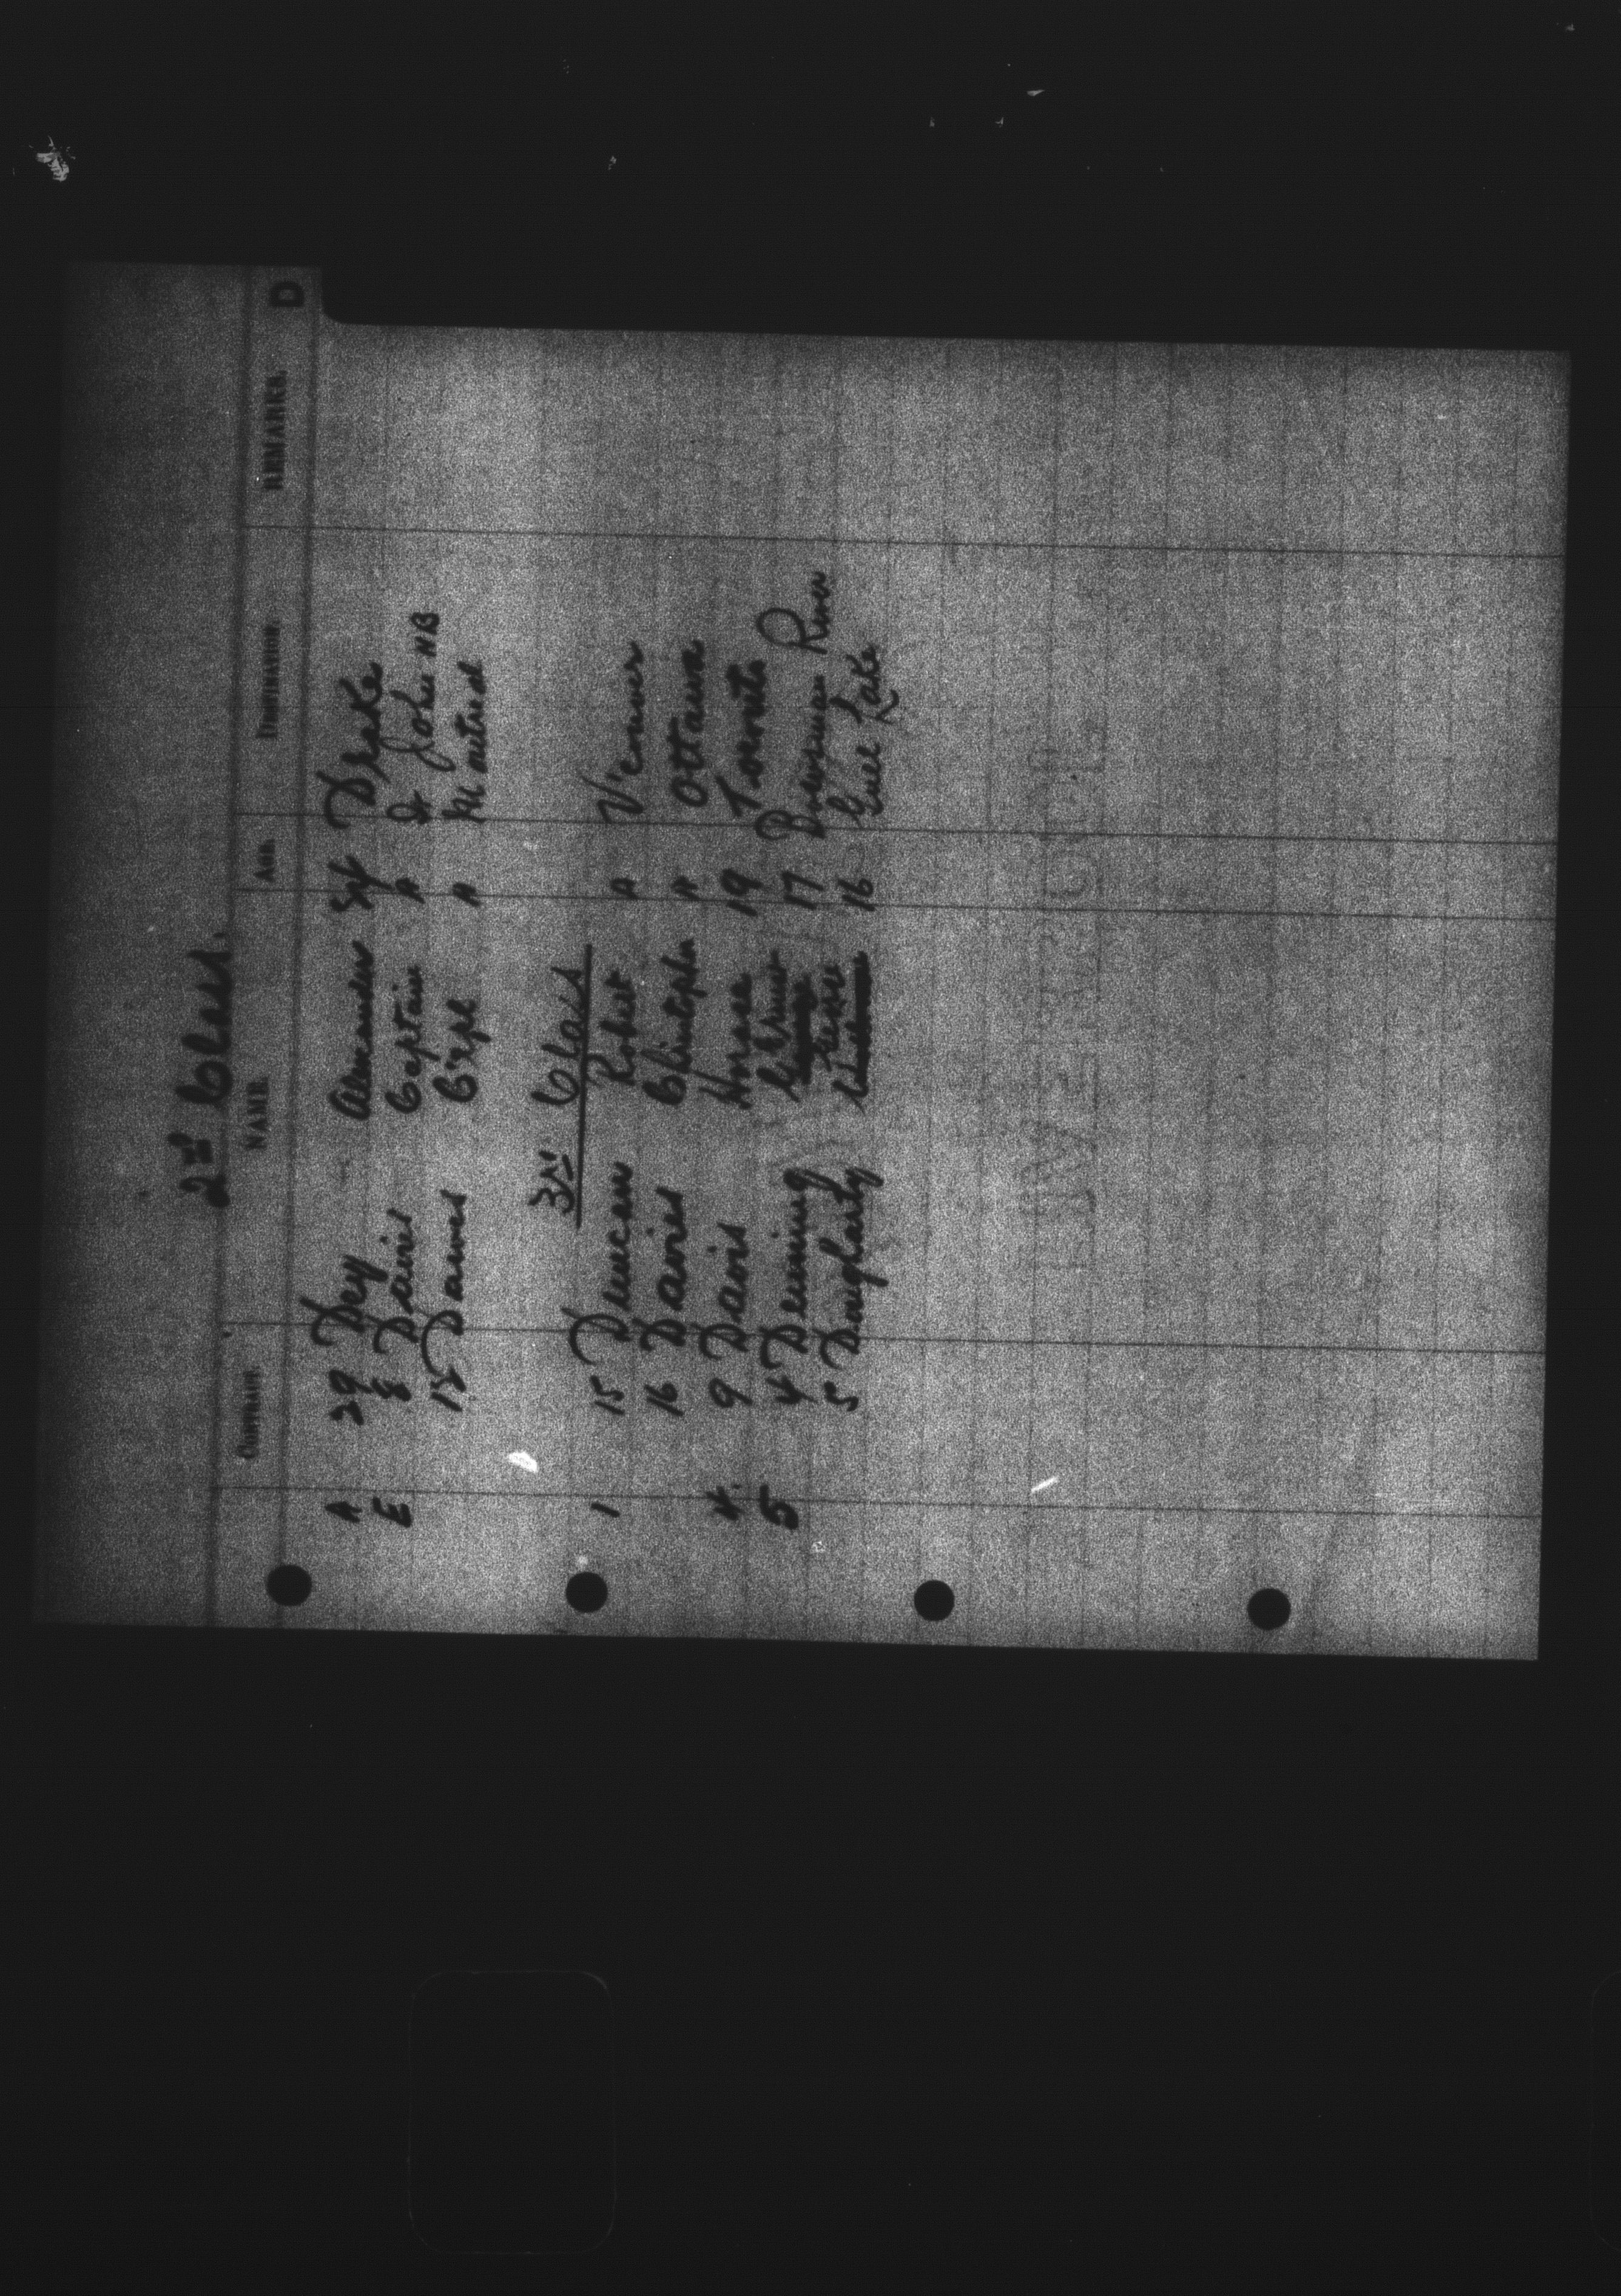 2nd Class.
CONTRACT. NAME. AGE. DESTINATION. REMARKS. D
A 29 Dey Alexander Inf Drake
E 8 Davies Captain A St John NB
12 Dawes Cecil A Montreal
3rd Class
1 15 Duncan Robert A
16 Davies Christopher A Ottawa
4. 9 Davis Horace 19 Toronto
5 4 Denning Ernest 17 Bowsman River
5 Dougharty 16 Gull Lake